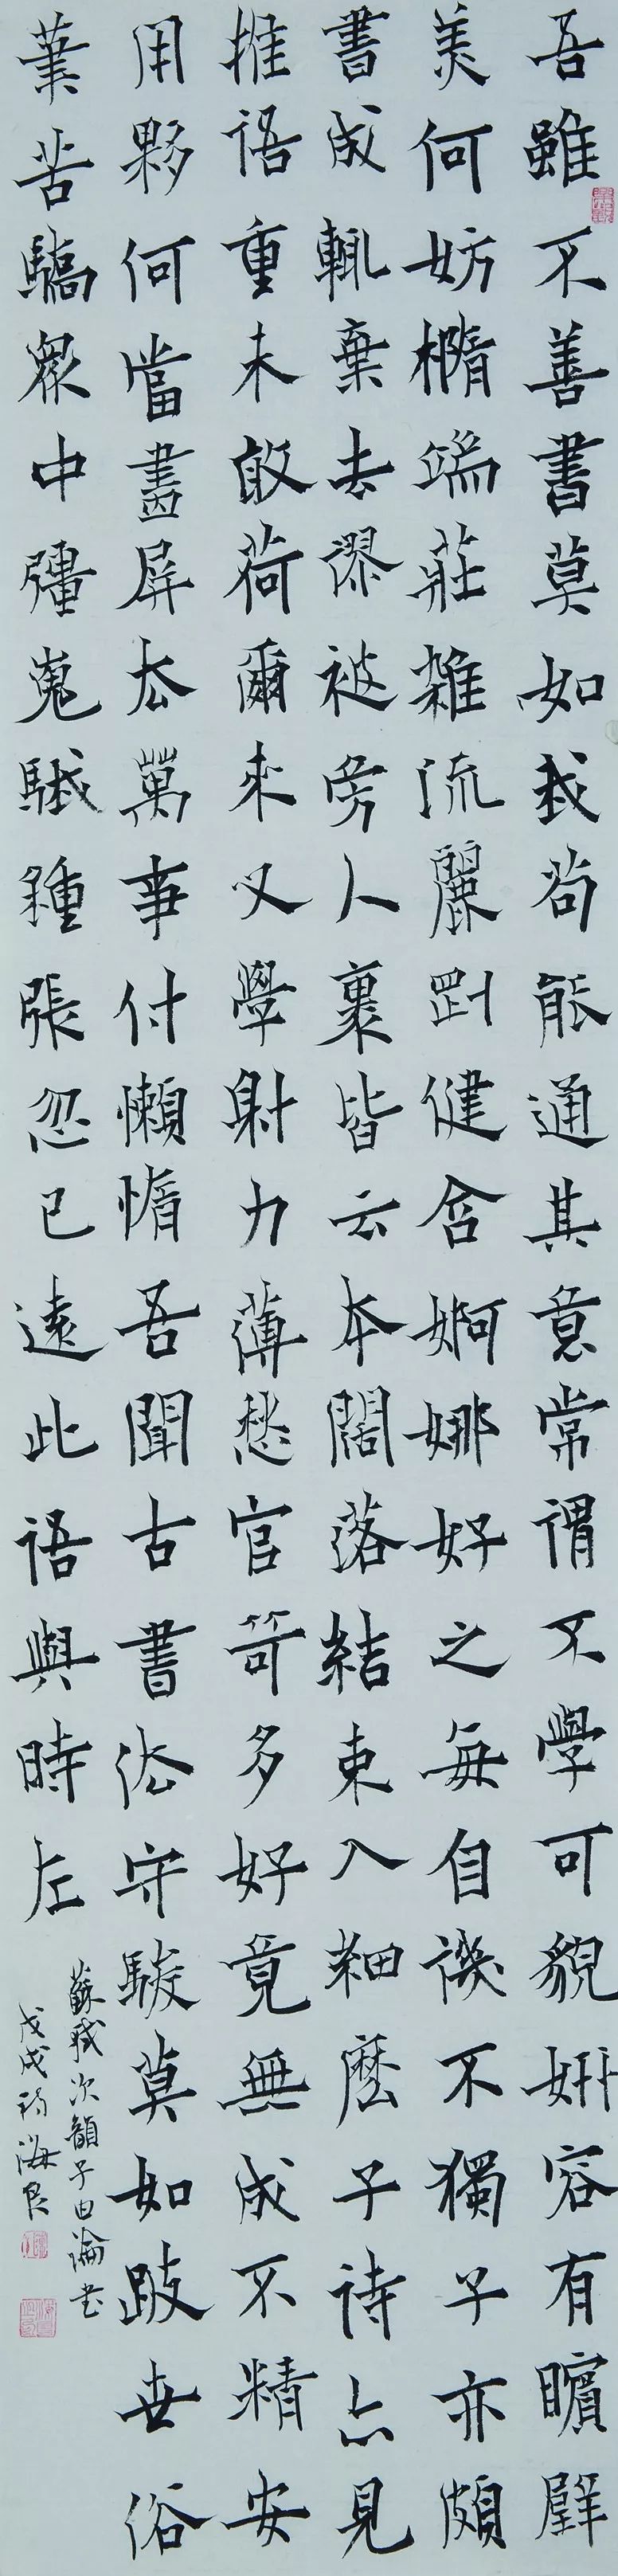 吾雖不善書莫如我苟能通其意常謂不學可貌妍容有矉璧
美何妨橢端莊雜流麗剛健含婀娜好之每自譏不獨子亦頗
書成輒棄去謬被旁人裹皆云本闊落結束入細麼子詩亦見
推語重未敢荷爾來又學射力薄愁官笴多好竟無成不精安
用夥何當盡屏去萬事付懶惰吾聞古書法守駿莫如跛世俗
筆苦驕眾中彊嵬騀鍾張忽已遠此語與時左
蘇軾次韻子由論書
戊戌海良